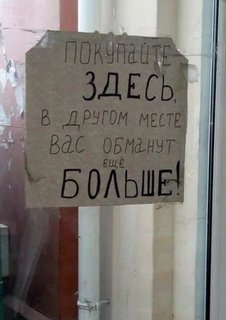 ПОКУПАЙТЕ
ЗДЕСЬ,
В ДРУГОМ МЕСТЕ
ВАС ОБМАНУТ
ЕЩЕ
БОЛЬШЕ!